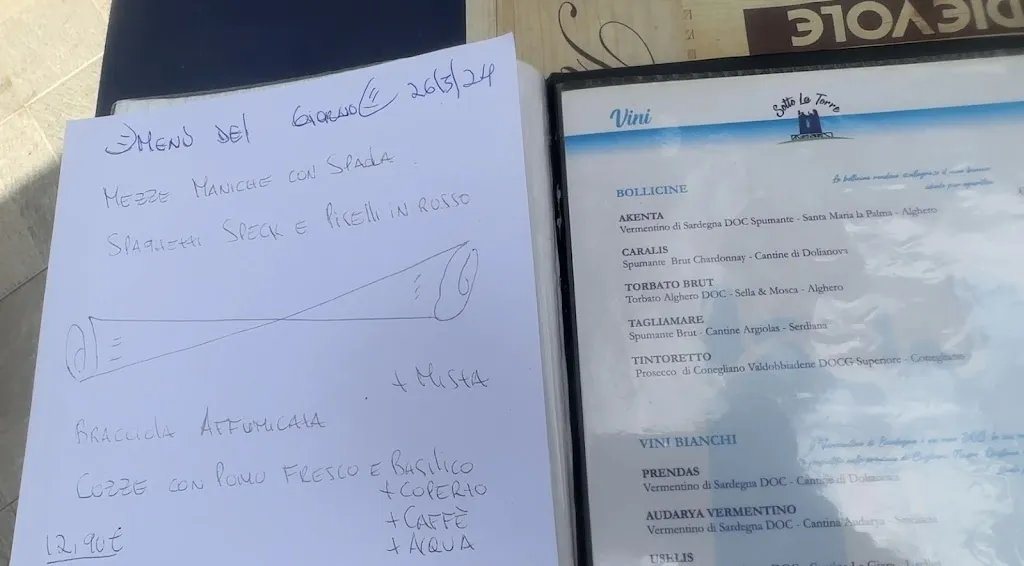 MENÙ DEL GIORNO 26/3/24
MEZZE MANICHE CON SPADA
SPAGHETTI SPECK E PISELLI IN ROSSO
+ MISTA
BRACIOLA AFFUMICATA
COZZE CON POMO FRESCO E BASILICO
+ COPERTO
+ CAFFÈ
+ ACQUA
12,90€
DIEVOLE
Vini
Sotto La Torre
BOLLICINE
AKENTA
Vermentino di Sardegna DOC Spumante - Santa Maria la Palma - Alghero
CARALIS
Spumante Brut Chardonnay - Cantine di Dolianova
TORBATO BRUT
Torbato Alghero DOC - Sella & Mosca - Alghero
TAGLIAMARE
Spumante Brut - Cantine Argiolas - Serdiana
TINTORETTO
Prosecco di Conegliano Valdobbiadene DOCG Superiore - Conegliano
VINI BIANCHI
PRENDAS
Vermentino di Sardegna DOC - Cantine di Dolianova
AUDARYA VERMENTINO
Vermentino di Sardegna DOC - Cantina Audarya - Serdiana
USELIS